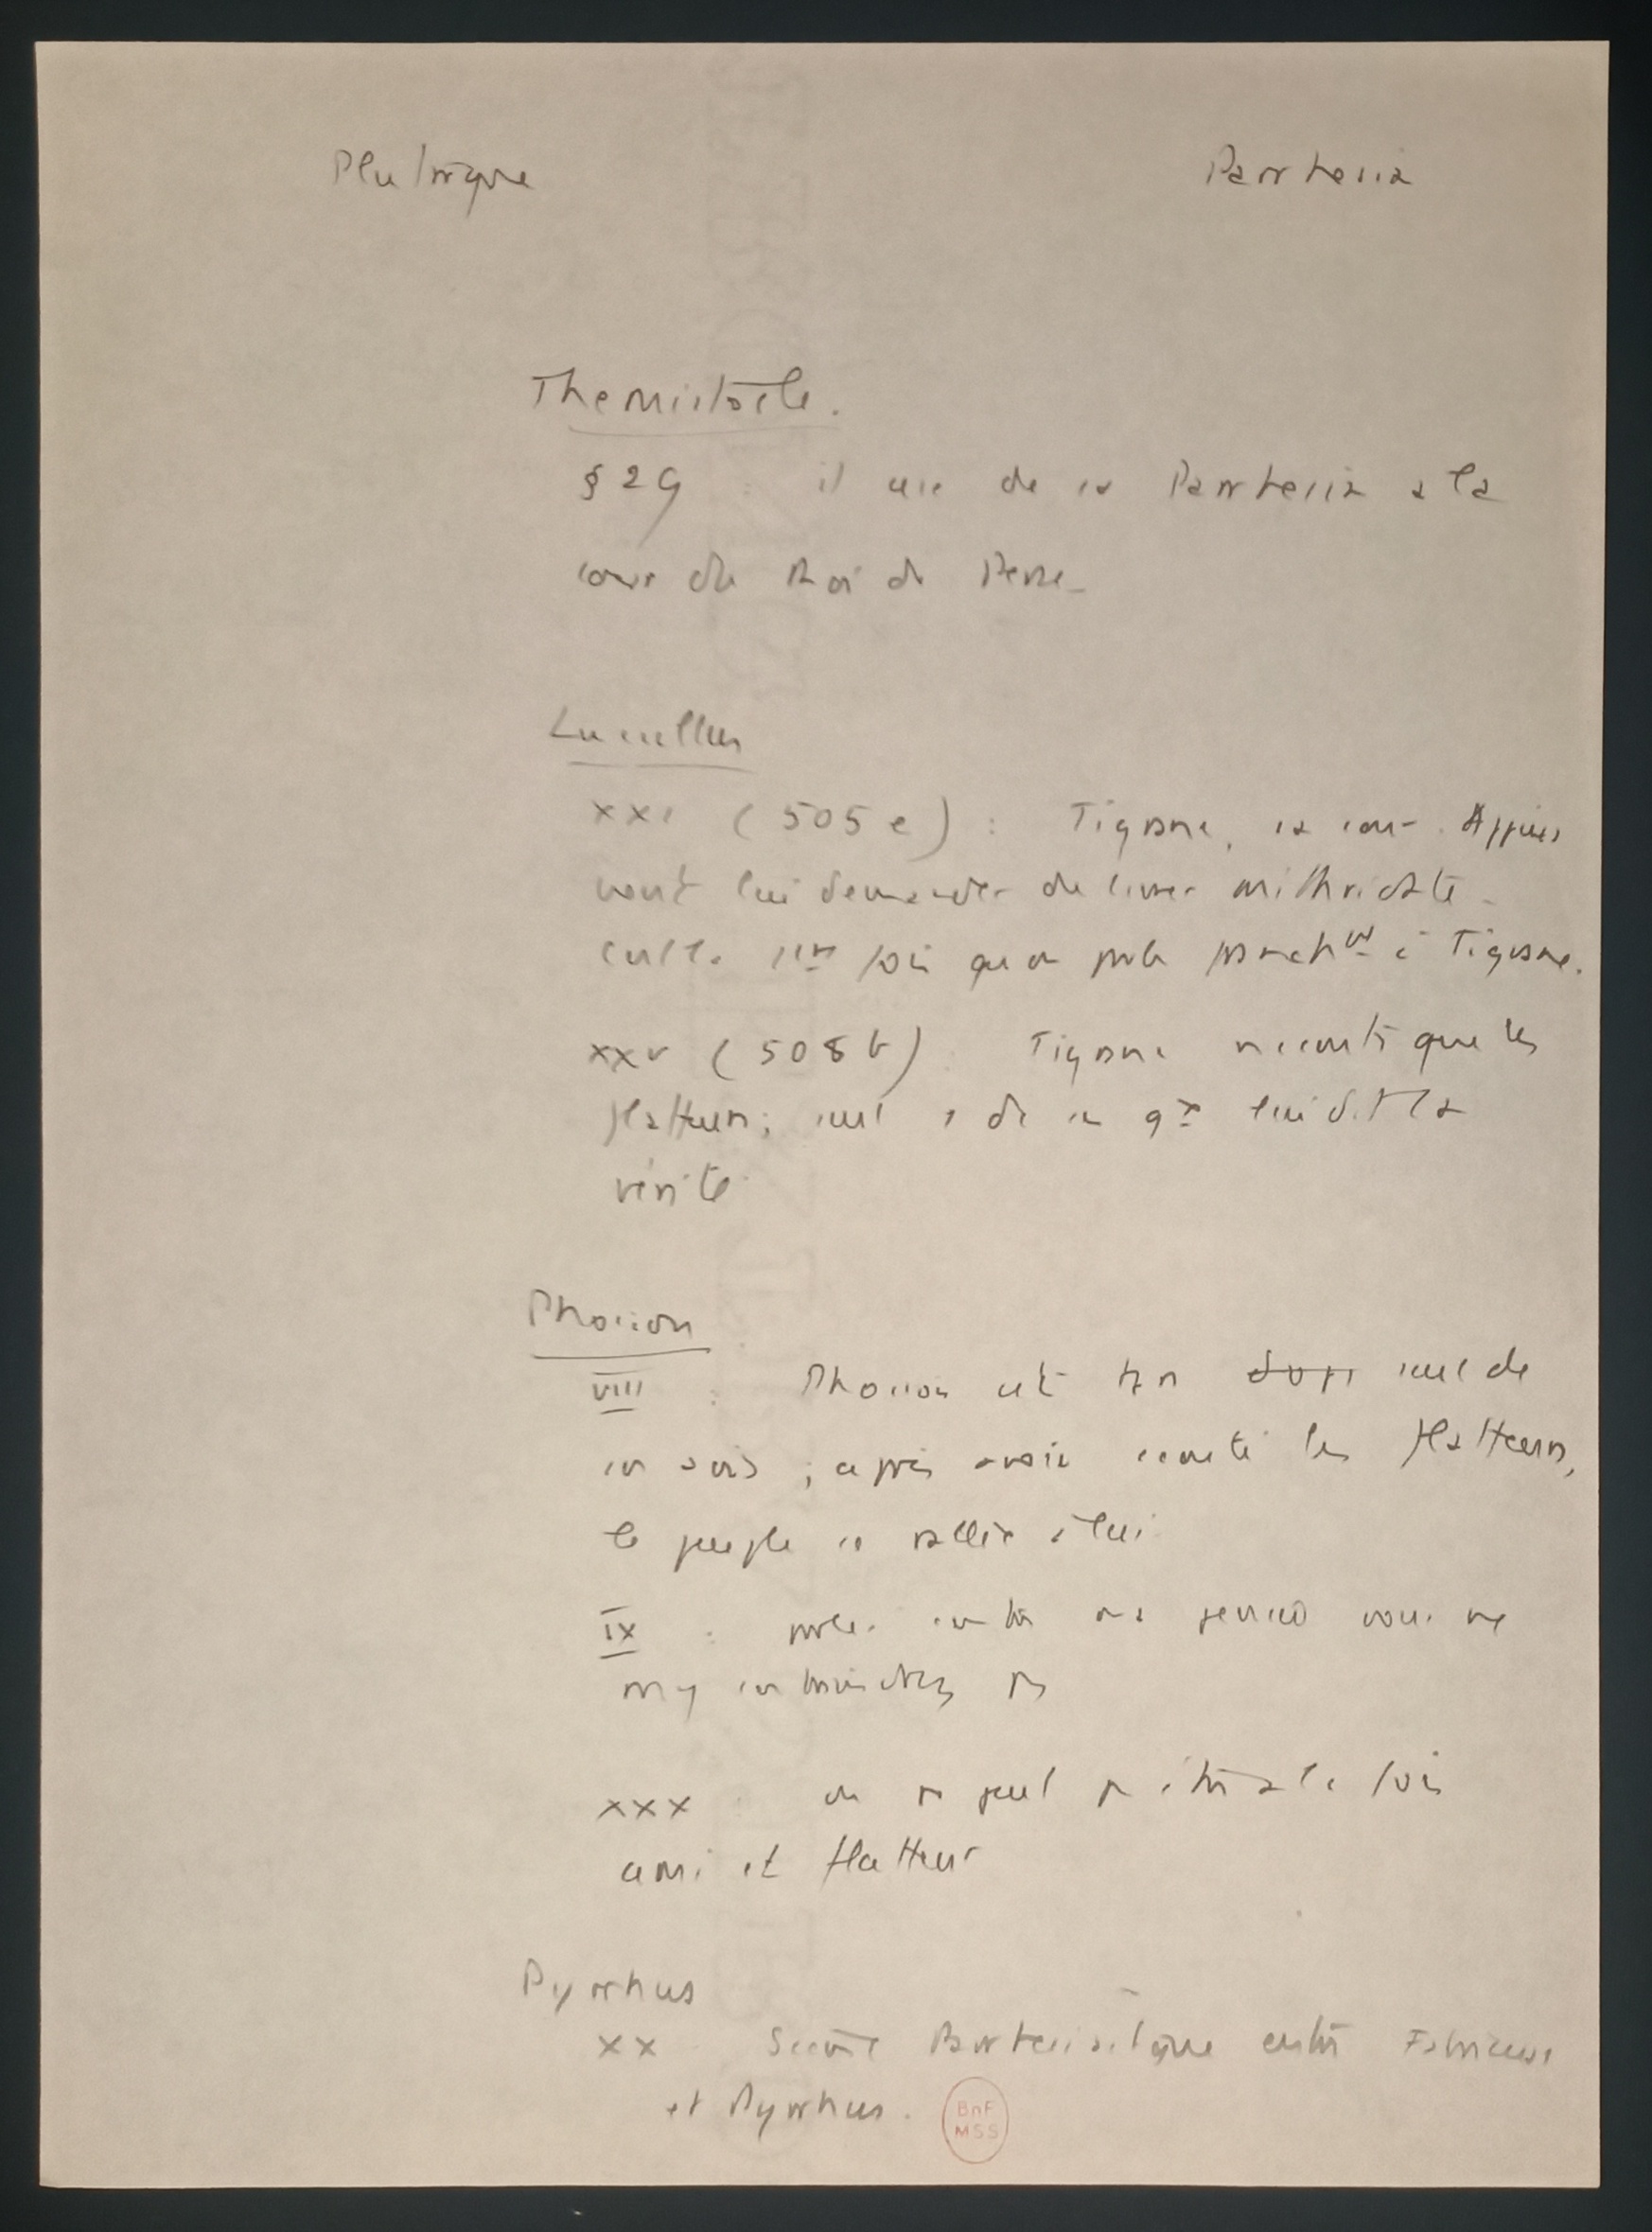 Plutarque
Parrhesia
Themistocle.
§ 29 : il use de sa Parrhesia à la
cour du Roi de Perse_
Lucullus
XXI (505 e) : Tigrane, sa cour. Appius
vient lui demander de livrer Mithridate_
1ère fois qu'on parle franchvt à Tigrane.
XXV (508 b) : Tigrane n'écoute que les
flatteurs;
lui dit la
vérité
Phocion
VIII : Phocion est seul de
son avis ; après avoir écouté les flatteurs,
le peuple se rallie à lui
IX : vous ne
m'y contraindrez ps
XXX : on ne peut ps être à la fois
ami et flatteur
Pyrrhus
XX Scène Parrhesiastique entre Fabricius
et Pyrrhus.
BnF
MSS